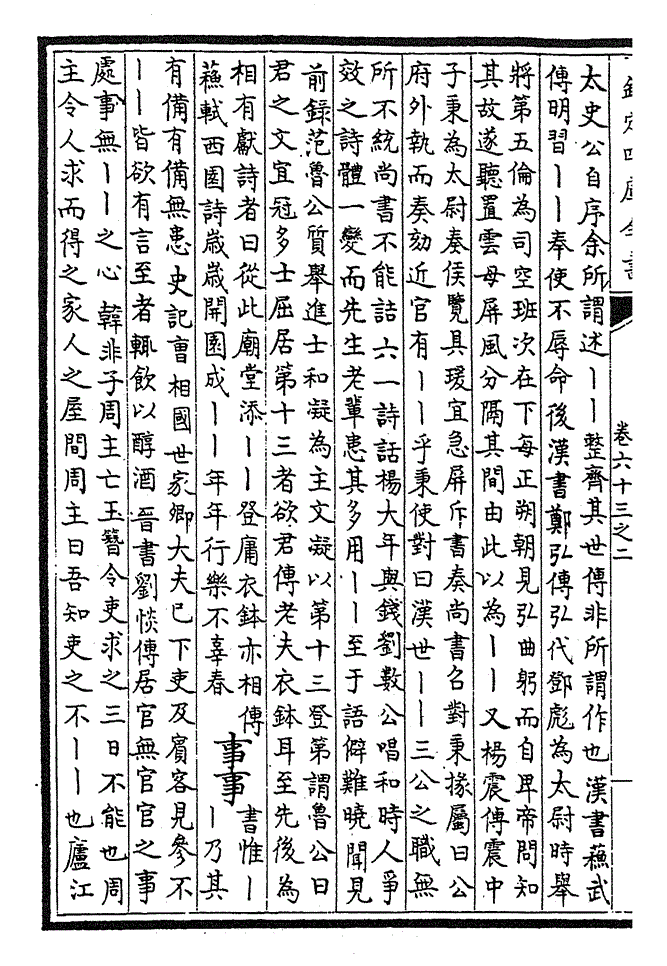 欽定四庫全書
卷六十三之二
太史公自序余所謂述丨丨整齊其世傳非所謂作也漢書蘇武
傳明習丨丨奉使不辱命後漢書鄭弘傳弘代鄧彪為太尉時舉
將第五倫為司空班次在下每正朔朝見弘曲躬而自卑帝問知
其故遂聽置雲母屏風分隔其間由此以為丨丨又楊震傳震中
子秉為太尉奏侯覽具瑗宜急屏斥書奏尚書召對秉掾屬曰公
府外執而奏劾近官有丨丨乎秉使對曰漢世丨丨三公之職無
所不統尚書不能詰六一詩話楊大年與錢劉數公唱和時人爭
效之詩體一變而先生老輩患其多用丨丨至于語僻難曉聞見
前録范魯公質舉進士和凝為主文凝以第十三登第謂魯公曰
君之文宜冠多士屈居第十三者欲君傳老夫衣鉢耳至先後為
相有獻詩者曰從此廟堂添丨丨登庸衣鉢亦相傳
蘇軾西園詩歲歲開園成丨丨年年行樂不辜春
事事
書惟丨
丨乃其
有備有備無患史記曹相國世家卿大夫已下吏及賓客見參不
丨丨皆欲有言至者輒飲以醇酒晉書劉惔傳居官無官官之事
處事無丨丨之心韓非子周主亡玉簪令吏求之三日不能也周
主令人求而得之家人之屋間周主曰吾知吏之不丨丨也廬江